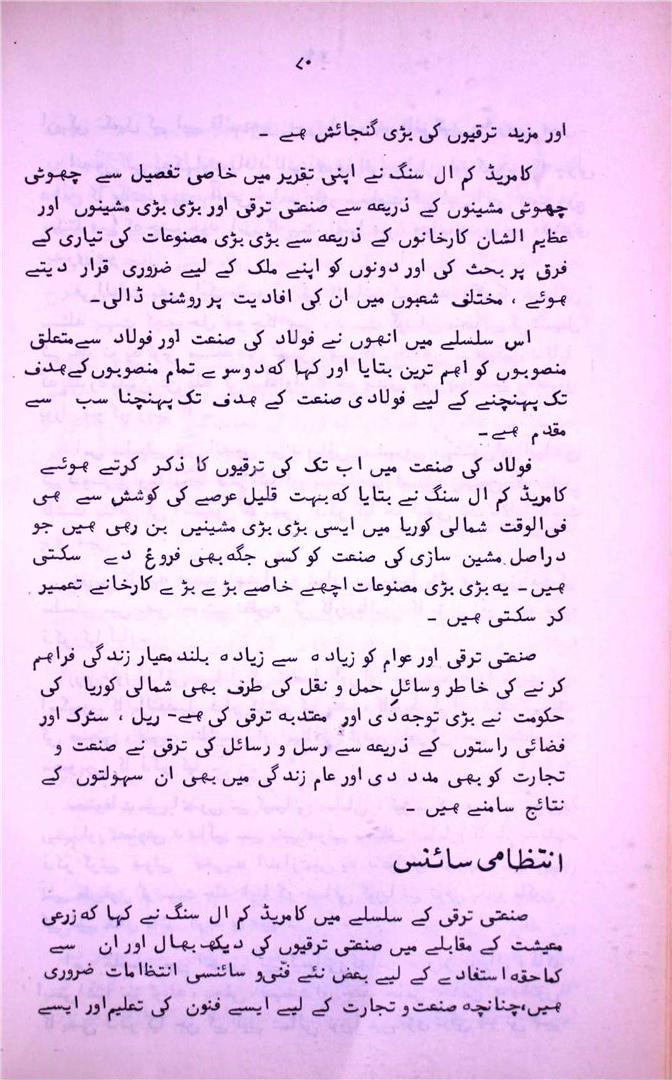 ۸۰
اور مزید ترقیوں کی بڑی گنجائش ھے ۔
کامریڈ کم ال سنگ نے اپنی تقریر میں خاصی تفصیل سے چھوٹی
چھوٹی مشینوں کے ذریعہ سے صنعتی ترقی اور بڑی بڑی مشینوں اور
عظیم الشان کارخانوں کے ذریعہ سے بڑی بڑی مصنوعات کی تیاری کے
فرق پر بحث کی اور دونوں کو اپنے ملک کے لیے ضروری قرار دیتے
ھوئے ، مختلف شعبوں میں ان کی افادیت پر روشنی ڈالی۔
اس سلسلے میں انھوں نے فولاد کی صنعت اور فولاد سے متعلق
منصوبوں کو اھم ترین بتایا اور کہا کہ دوسرے تمام منصوبوں کے ھدف
تک پہنچنے کے لیے فولادی صنعت کے ھدف تک پہنچنا سب سے
مقدم ھے۔
فولاد کی صنعت میں اب تک کی ترقیوں کا ذکر کرتے ھوئے
کامریڈ کم ال سنگ نے بتایا کہ بہت قلیل عرصے کی کوشش سے ھی
فی الوقت شمالی کوریا میں ایسی بڑی بڑی مشینیں بن رھی ھیں جو
دراصل مشین سازی کی صنعت کو کسی جگہ بھی فروغ دے سکتی
ھیں۔ یہ بڑی بڑی مصنوعات اچھے خاصے بڑے بڑے کارخانے تعمیر
کر سکتی ھیں ۔
صنعتی ترقی اور عوام کو زیادہ سے زیادہ بلند معیار زندگی فراھم
کرنے کی خاطر وسائل حمل و نقل کی طرف بھی شمالی کوریا کی
حکومت نے بڑی توجہ دی اور معتدبہ ترقی کی ھے۔ ریل ، سڑک اور
فضائی راستوں کے ذریعہ سے رسل و رسائل کی ترقی نے صنعت و
تجارت کو بھی مدد دی اور عام زندگی میں بھی ان سہولتوں کے
نتائج سامنے ھیں ۔
انتظامی سائنس
صنعتی ترقی کے سلسلے میں کامریڈ کم ال سنگ نے کہا کہ زرعی
معیشت کے مقابلے میں صنعتی ترقیوں کی دیکھ بھال اور ان سے
کماحقہ استفادے کے لیے بعض نئے فنی و سائنسی انتظامات ضروری
ھیں، چنانچہ صنعت و تجارت کے لیے ایسے فنون کی تعلیم اور ایسے